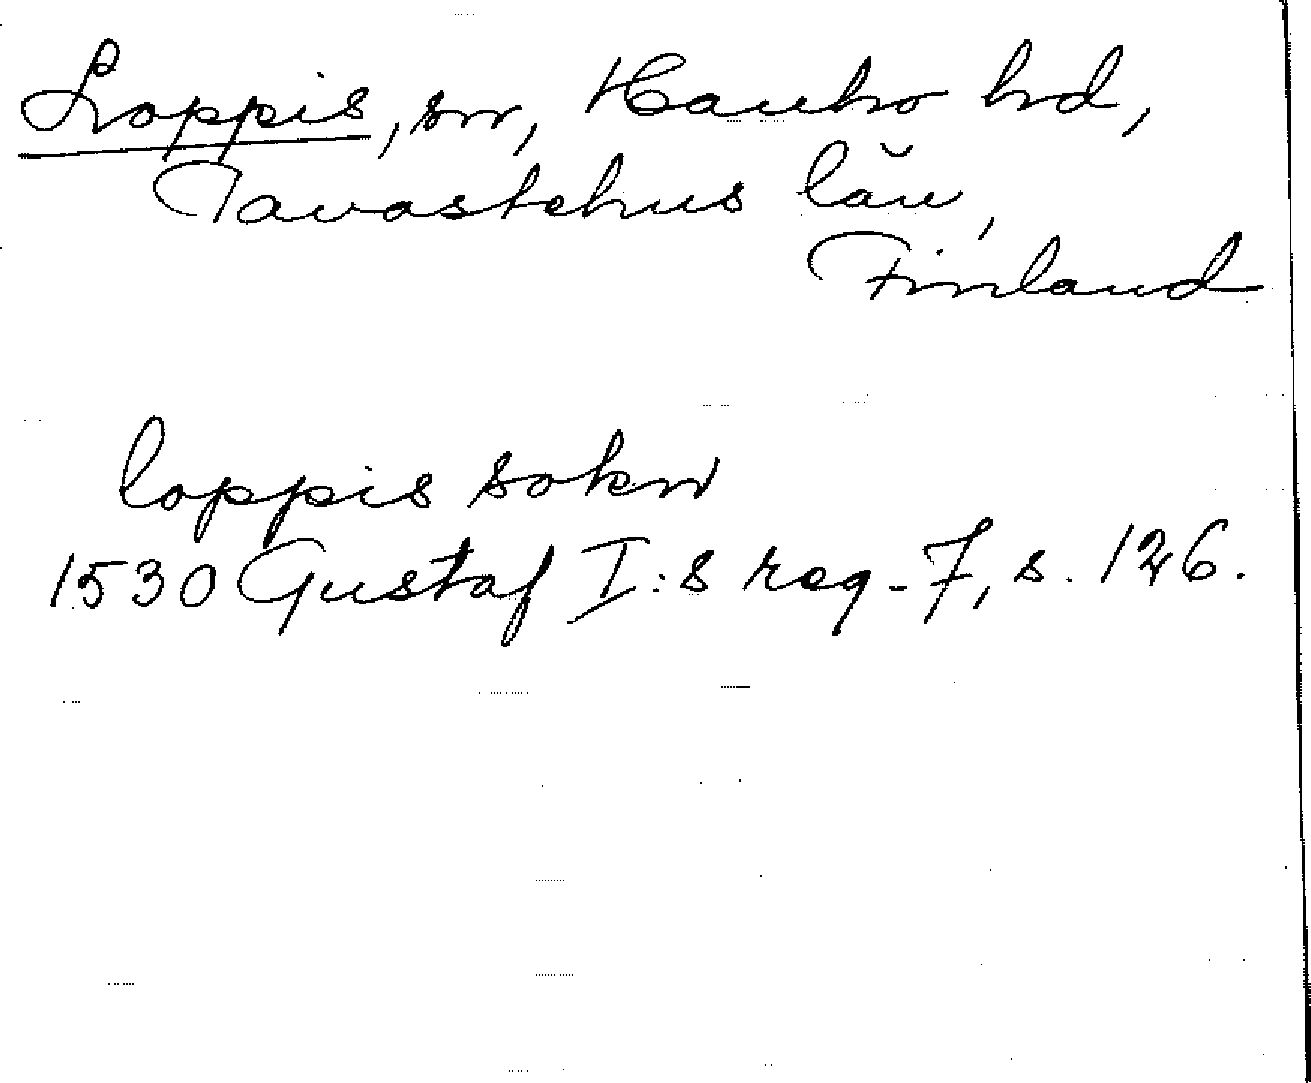 Loppis, sn, Hauho hd,
Tavastehus län,
Finland
loppis sokn
1530 Gustaf I:s reg. 7, s. 126.